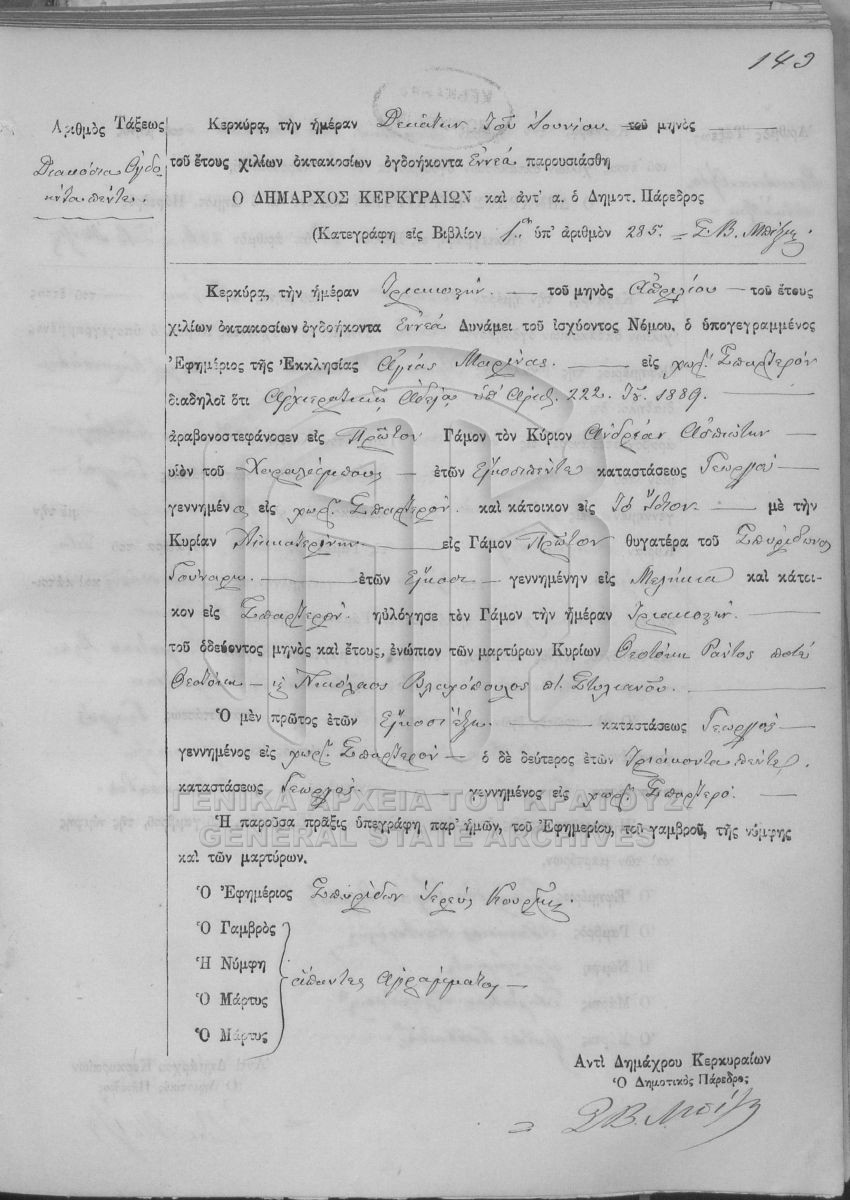 143
Ἀριθμὸς Τάξεως
Διακόσια Ὀγδο
ήντα πέντε.
Κερκύρᾳ, τὴν ἡμέραν Δεκάτην. Τοῦ Ἰουνίου. τοῦ μηνὸς
τοῦ ἔτους χιλίων ὀκτακοσίων ὀγδοήκοντα Ἐννέα παρουσιάσθη
Ο ΔΗΜΑΡΧΟΣ ΚΕΡΚΥΡΑΙΩΝ καὶ ἀντ' α. ὁ Δημοτ. Πάρεδρος
(Κατεγράφη εἰς Βιβλίον 1ον ὑπ' ἀριθμὸν 285. Σ. Β.
Κερκύρᾳ, τὴν ἡμέραν Τριακοστήν. τοῦ μηνὸς Ἀπριλίου τοῦ ἔτους
χιλίων ὀκτακοσίων ὀγδοήκοντα Ἐννέα Δυνάμει τοῦ ἰσχύοντος Νόμου, ὁ ὑπογεγραμμένος
Ἐφημέριος τῆς Ἐκκλησίας Ἁγίας Μαρίνας. εἰς χωρ. Σπαρτερὸν
διαδηλοῖ ὅτι Ἀρχιερατικῇ Ἀδείᾳ ὑπ' Ἀριθ. 222. Τοῦ 1889.
ἀραβονοστεφάνοσεν εἰς Πρῶτον Γάμον τὸν Κύριον Ἀνδρέαν Ἀσπιώτην
υἱὸν τοῦ Χαραλάμπους ἐτῶν Εἴκοσι πέντε καταστάσεως Γεωργοῦ
γεννημένον εἰς χωρ. Σπαρτερὸν. καὶ κάτοικον εἰς Τὸ Ἴδιον. μὲ τὴν
Κυρίαν Αἰκατερίνην. εἰς Γάμον Πρῶτον θυγατέρα τοῦ Σπυρίδωνος
Γούναρη. ἐτῶν Εἴκοσι γεννημένην εἰς Μελήκια καὶ κάτοι-
κον εἰς Σπαρτερὸν. ηὐλόγησε τὸν Γάμον τὴν ἡμέραν Τριακοστήν.
τοῦ ὁδεύοντος μηνὸς καὶ ἔτους, ἐνώπιον τῶν μαρτύρων Κυρίων Θεοτόκη Ράντος ποτὲ
Θεοτόκη Νικόλαος Βλαχόπουλος π. Στυλιανοῦ.
Ὁ μὲν πρῶτος ἐτῶν Εἴκοσι ἕξι. καταστάσεως Γεωργὸς
γεννημένος εἰς χωρ. Σπαρτερὸν ὁ δὲ δεύτερος ἐτῶν Τριάκοντα πέντε.
καταστάσεως Γεωργὸς. γεννημένος εἰς χωρ. Σπαρτερό.
ΓΕΝΙΚΑ ΑΡΧΕΙΑ ΤΟΥ ΚΡΑΤΟΥΣ
Ἡ παροῦσα πρᾶξις ὑπεγράφη παρ' ἡμῶν, τοῦ Ἐφημερίου, τοῦ γαμβροῦ, τῆς νύμφης
GENERAL STATE ARCHIVES
καὶ τῶν μαρτύρων.
Ὁ Ἐφημέριος Σπυρίδων Ἱερεὺς
Ὁ Γαμβρὸς
Ἡ Νύμφη
ἅπαντες ἀγράμματοι
Ὁ Μάρτυς
Ὁ Μάρτυς
Ἀντὶ Δημάχρου Κερκυραίων
Ὁ Δημοτικὸς Πάρεδρος